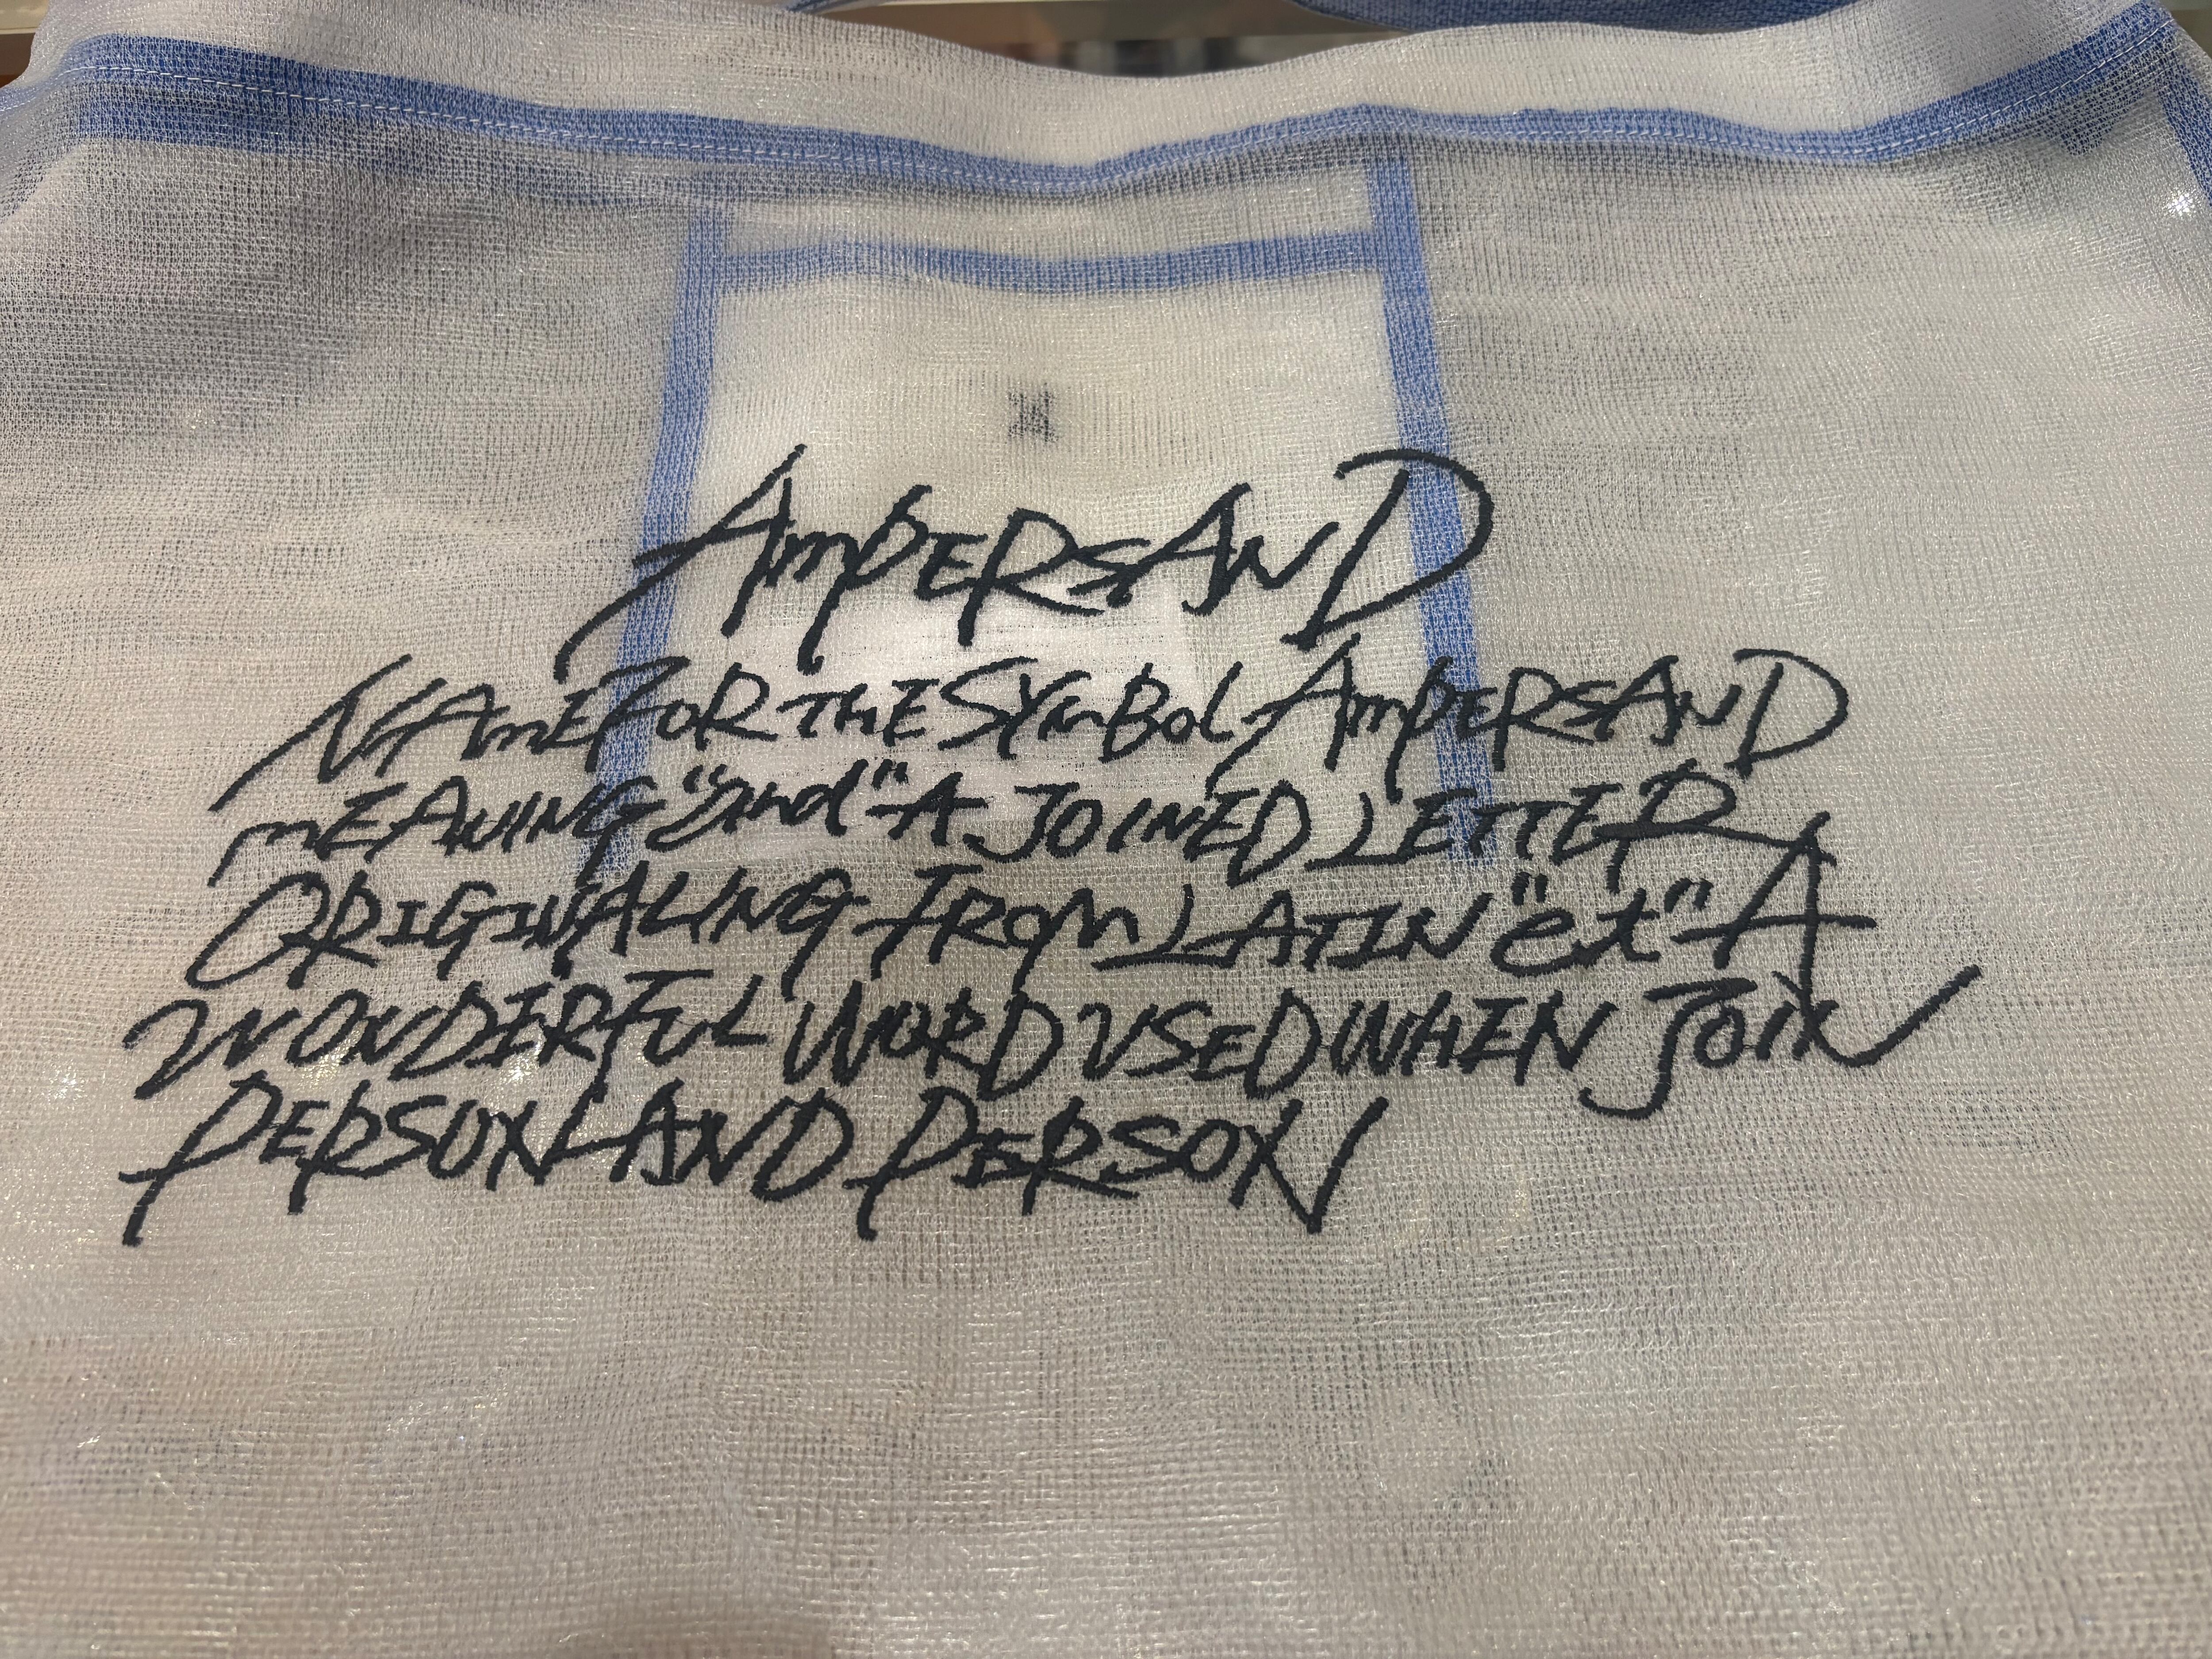 AmpERSAND
NAmE FOR THE SYmBOL AmPERSAND
mEANING "and" A JOINED LETTER
ORIGINALING FROM LATIN "et" A
WONDERFUL WORD USED WHEN JOIN
PERSON AND PERSON